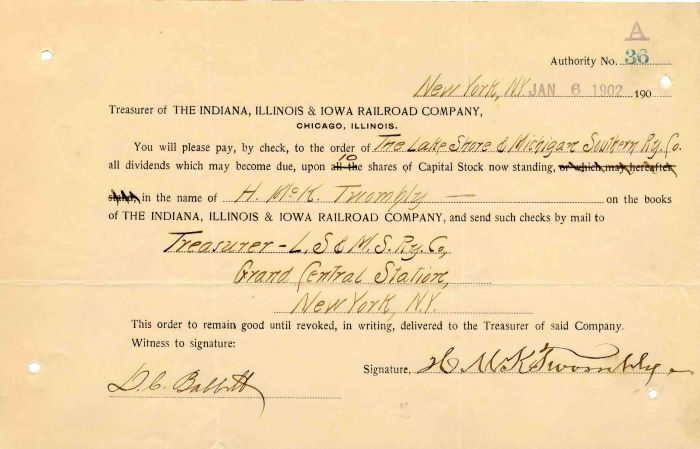 A
Authority No. 36
New York, NY. JAN 6 1902 190
Treasurer of THE INDIANA, ILLINOIS & IOWA RAILROAD COMPANY,
CHICAGO, ILLINOIS.
You will please pay, by check, to the order of The Lake Shore & Michigan Southern Ry. Co.
10
all dividends which may become due, upon all the shares of Capital Stock now standing, or which may hereafter
stand, in the name of H. McK. Twombly — on the books
of THE INDIANA, ILLINOIS & IOWA RAILROAD COMPANY, and send such checks by mail to
Treasurer - L. S. & M. S. Ry. Co,
Grand Central Station,
New York, NY.
This order to remain good until revoked, in writing, delivered to the Treasurer of said Company.
Witness to signature:
Signature, H McK Twombly
D. C.